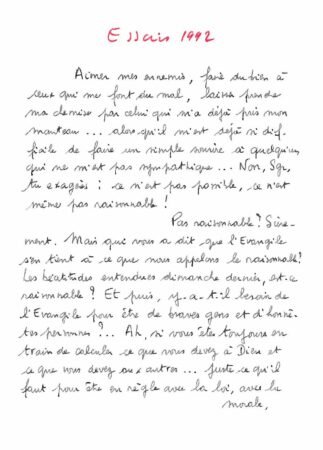 Essais 1992
Aimer mes ennemis, faire du bien à
ceux qui me font du mal, laisser prendre
ma chemise par celui qui m'a déjà pris mon
manteau ... alors qu'il m'est déjà si dif-
ficile de faire un simple sourire à quelqu'un
qui ne m'est pas sympathique ... Non, Sgr,
tu exagères : ce n'est pas possible, ce n'est
même pas raisonnable !
Pas raisonnable ? Sûre-
ment. Mais qui vous a dit que l'Evangile
s'en tient à ce que nous appelons le raisonnable ?
Les béatitudes entendues dimanche dernier, est-ce
raisonnable ? Et puis, y-a-t-il besoin de
l'Evangile pour être de braves gens et d'honnê-
tes personnes ?... Ah, si vous êtes toujours en
train de calculer ce que vous devez à Dieu et
ce que vous devez aux autres ... juste ce qu'il
faut pour être en règle avec la loi, avec la
morale,